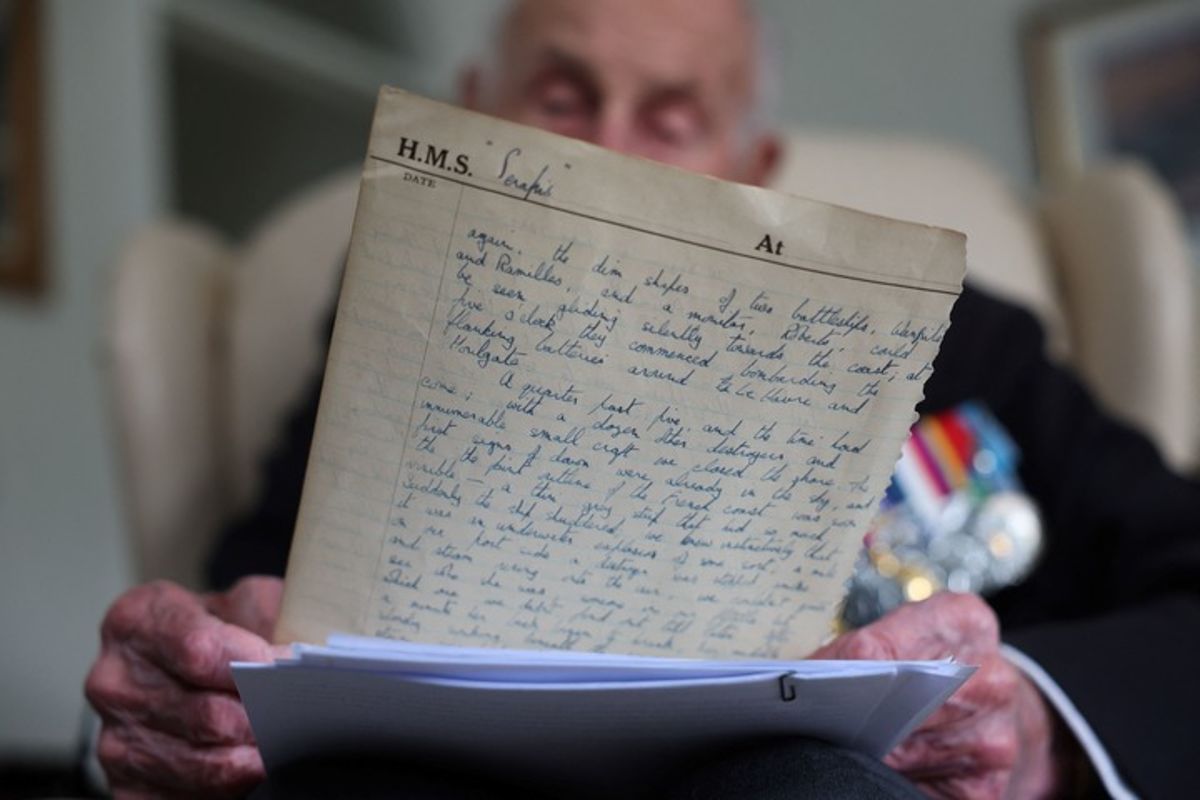 H.M.S. "Serapis" At
DATE
again, the dim shapes of two battleships, Warspite
and Ramillies, and a monitor, 'Roberts' could
be seen gliding silently towards the coast; at
five o'clock they commenced bombarding the
flanking batteries around the Le Havre and
Houlgate.
A quarter past five, and the time had
come; with a dozen other destroyers and
innumerable small craft we closed the shore. The
first signs of dawn were already in the sky, and
the the faint outline of the French coast was
visible — a thin grey strip that hid so much.
Suddenly the ship shuddered, we knew instinctively that
it was an underwater explosion of some sort, a mile
on our port side a destroyer was
and steam into the air. we couldn't
see who she was
a minute her back